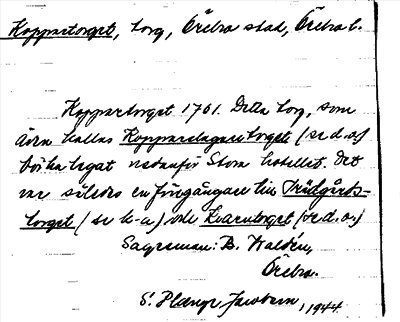 Koppartorget, torg, Örebro stad, Örebro l.
Koppartorget 1761. Detta torg, som
även kallas Kopparslagaretorget (se d.o.)
torde ha legat nedanför Stora hotellet. Det
var således en föregångare till Trädgårds-
torget (se k-a) och Kvarntorget (se d.o.)
Sagesman: B. Waldén,
Örebro.
S. 1944.